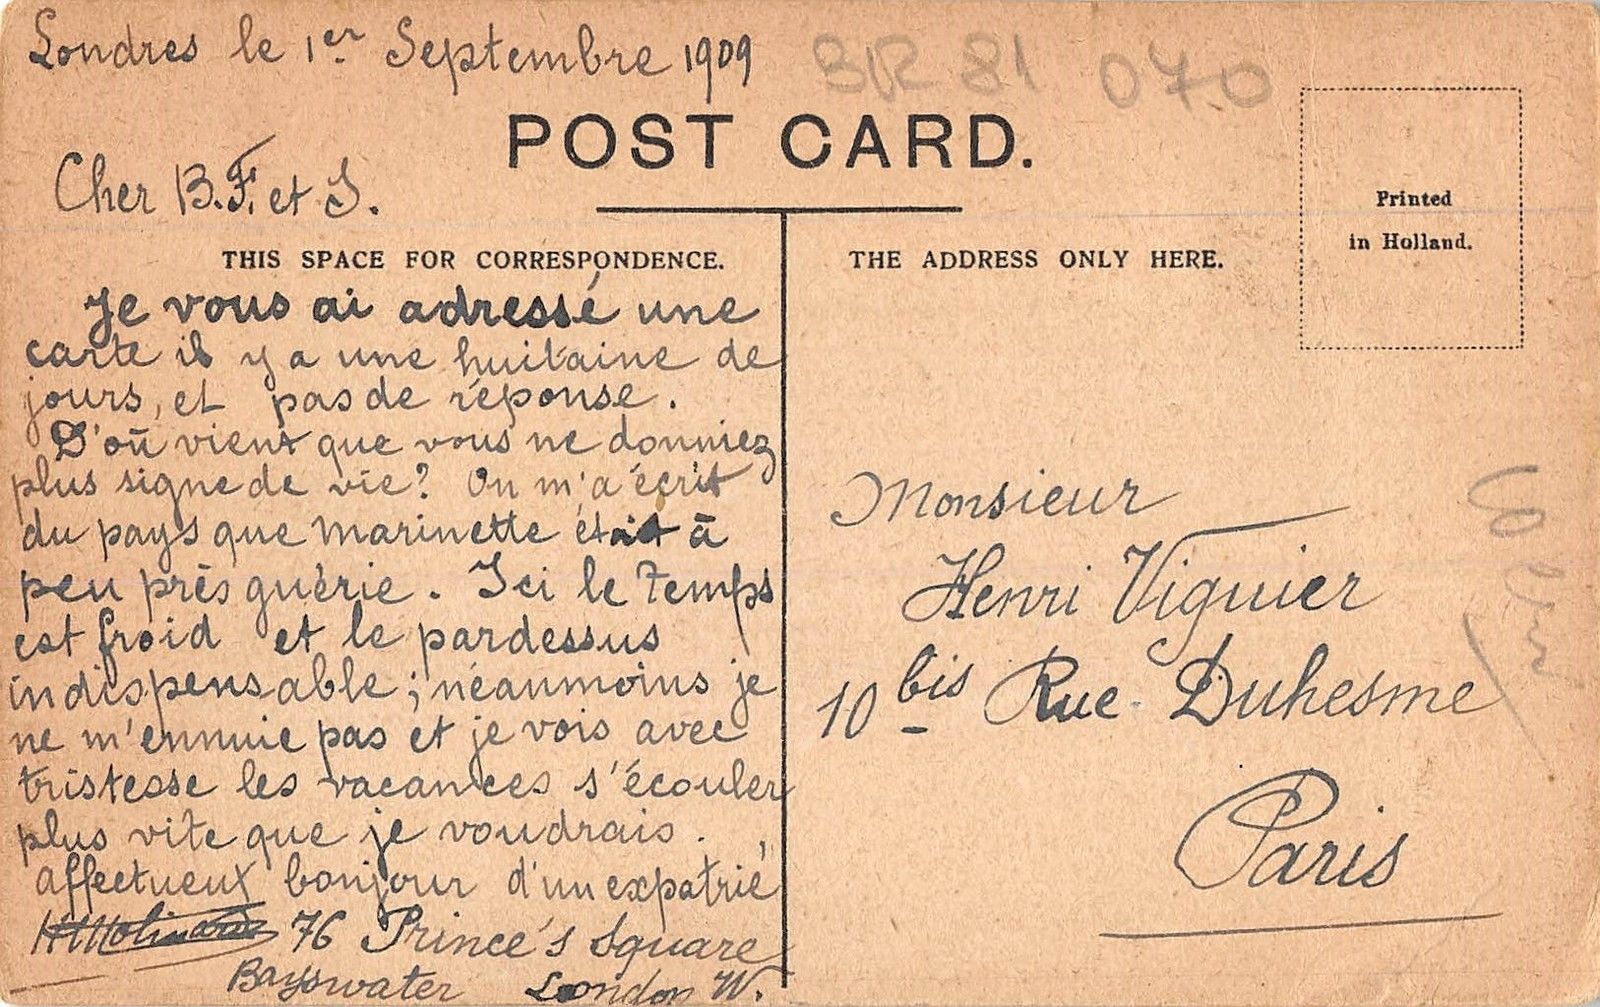 Londres le 1er Septembre 1909
070
POST CARD.
Cher B.F. et J.
Printed
in Holland.
THIS SPACE FOR CORRESPONDENCE.
Je vous ai adressé une
carte il y a une huitaine de
jours, et pas de réponse.
D'où vient que vous ne donniez
plus signe de vie? On m'a écrit
du pays que Marinette était à
peu près guérie. Ici le temps
est froid et le pardessus
indispensable; néaumoins je
ne m'ennuie pas et je vois avec
tristesse les vacances s'écouler
plus vite que je voudrais.
affectueux bonjour d'un expatrié
76 Prince's Square
Bayswater London W.
THE ADDRESS ONLY HERE.
Monsieur
Henri Viguier
10 bis Rue Duhesme
Paris